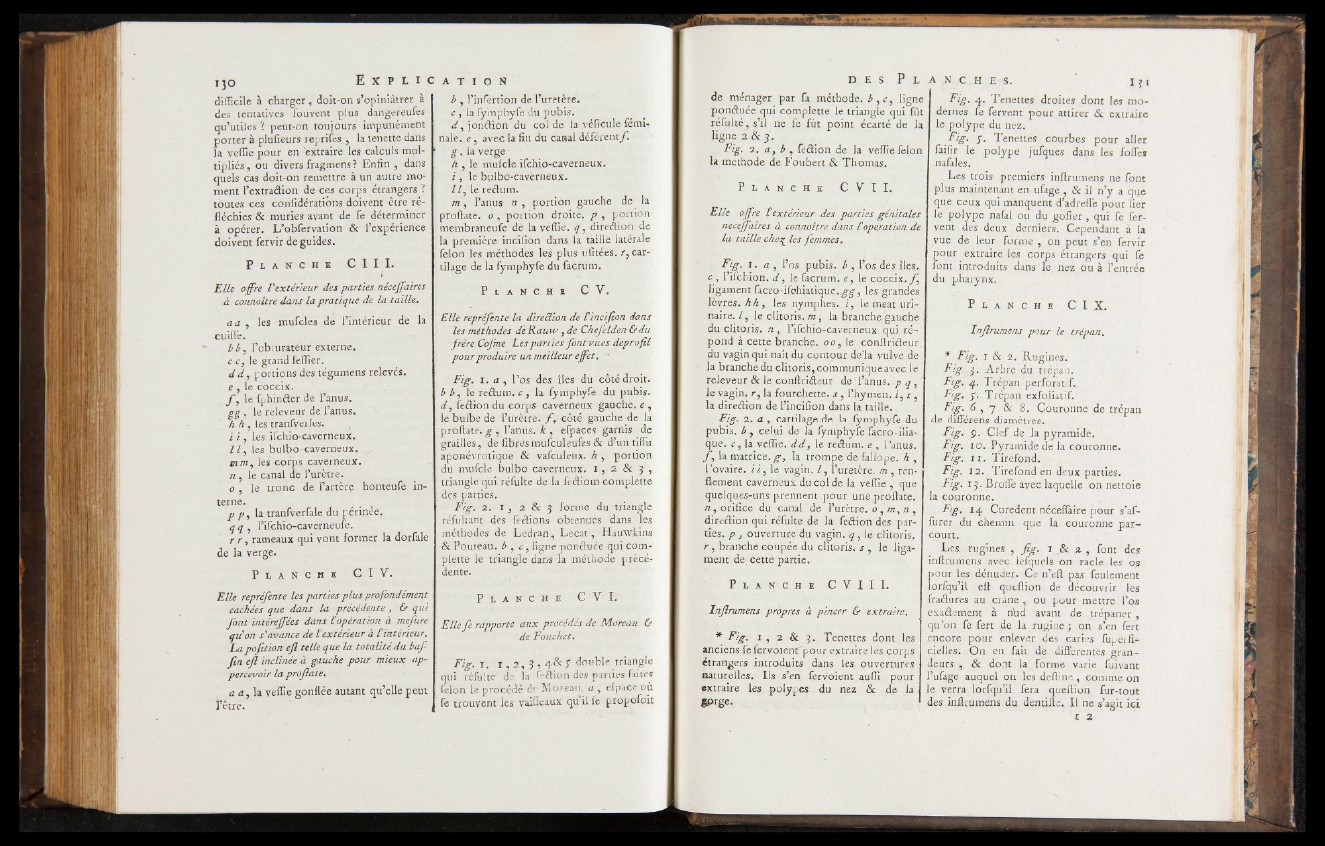 130 EXPLICATION
difficile à charger, doit-on s’opiniâtrer à
des tentatives souvent plus dangereuses
qu’utiles ? peut-on toujours impunément
porter à plusieurs reprises, la tenette dans
la vessie pour en extraire les calculs mul-
tipliés, ou divers fragmens ? Enfin, dans
quels cas doit-on remettre à un autre mo-
ment l’extraction de ces corps étrangers ?
toutes ces considérations doivent être ré-
fléchies & muries avant de se déterminer
à opérer. L’observation & l’expérience
doivent servir de guides.
PLANCHE CIII.
Elle offre l’extérieur des parties nécessaires
à connoître dans la pratique de la taille.
aa, les muscles de l’intérieur de la
cuisse.
bb, l’obturateur externe.
cc, le grand fessier.
dd, portions des tégumens relevés.
e, le coccix.
f, le sphincter de l’anus.
gg, le releveur de l’anus.
hh, les transverses.
ii, les ischio-caverneux.
ll, les bulbo-caverneux.
mm, les corps caverneux.
n, le canal de l’urètre.
o, le tronc de l’artère honteuse in-
terne.
pp, la transversale du périnée.
qq, l’ischio-caverneuse.
rr, rameaux qui vont former la dorsale
de la verge.
PLANCHE CIV.
Elle représente les parties plus profondément
cachées que dans la précédente, & qui
sont intéressées dans l’opération à mesure
qu’on s’avance de l’extérieur à l’intérieur.
La position est telle que la totalité du bas-
sin est inclinée à gauche pour mieux ap-
percevoir la prostate.
aa, la vessie gonflée autant qu’elle peut
l’être.
b, l’insertion de l’uretère.
c, la symphyse du pubis.
d, jonction du col de la vésicule sémi-
nale. e, avec la fin du canal déférent f.
g, la verge
h, le muscle ischio-caverneux.
i, le bulbo-caverneux.
ll, le rectum.
m, l’anus n, portion gauche de la
prostate. o, portion droite. p, portion
membraneuse de la vessie. q, direction de
la première incision dans la taille latérale
selon les méthodes les plus usitées. r, car-
tilage de la symphyse du sacrum.
PLANCHE CV.
Elle représente la direction de l’incision dans
les méthodes de Rauw, de Cheselden & du
frère Cosme Les parties sont vues de profil
pour produire un meilleur effet.
Fig. 1. a, l’os des îles du côté droit.
bb, le rectum. c, la symphyse du pubis.
d, section du corps caverneux gauche. e,
le bulbe de l’urètre. f, côté gauche de la
prostate. g, l’anus. k, espaces garnis de
graisses, de fibres musculeuses & d’un tissu
aponévrotique & vasculeux. h, portion
du muscle bulbo caverneux. 1, 2 & 3,
triangle qui résulte de la section complette
des parties.
Fig. 2. 1, 2 & 3 forme du triangle
résultant des sections obtenues dans les
méthodes de Ledran, Lecat, Hauwkins
& Pouteau. b, c, ligne ponctuée qui com-
plette le triangle dans la méthode précé-
dente.
PLANCHE CVI.
Elle se rapporte aux procédés de Moreau &
de Fouchet.
Fig. 1. 1, 2, 3, 4 & 5 double triangle
qui résulte de la section des parties faites
selon le procédé de Moreau. a, espace où
se trouvent les vaisseaux qu’il se proposoit
DES PLANCHES. 131
de ménager par sa méthode. b, c, ligne
ponctuée qui complette le triangle qui fût
résulté, s’il ne se fût point écarté de la
ligne 2 & 3.
Fig. 2. a, b, section de la vessie selon
la méthode de Foubert & Thomas.
PLANCHE CVII.
Elle offre l’extérieur des parties génitales
necessaires à connoître dans l’opération de
la taille chez les femmes.
Fig. 1. a, l’os pubis. b, l’os des îles.
c, l’ischion. d, le sacrum. e, le coccix. f,
ligament sacro-ischiatique. gg, les grandes
lèvres. hh, les nymphes. i, le meat uri-
naire. l, le clitoris. m, la branche gauche
du clitoris. n, l’ischio-caverneux qui ré-
pond à cette branche. oo, le constricteur
du vagin qui naît du contour de la vulve de
la branche du clitoris, communique avec le
releveur & le constricteur de l’anus. p q,
le vagin. r, la fourchette. s, l’hymen. i, t,
la direction de l’incision dans la taille.
Fig. 2. a, cartilage de la symphyse du
pubis. b, celui de la symphyse sacro-ilia-
que. c, la vessie. dd, le rectum. e, l’anus.
f, la matrice. g, la trompe de fallope. h,
l’ovaire. ii, le vagin. l, l’uretère. m, ren-
flement caverneux du col de la vessie, que
quelques-uns prennent pour une prostate.
n, orifice du canal de l’urètre. o, m, n,
direction qui résulte de la section des par-
ties. p, ouverture du vagin. q, le clitoris.
r, branche coupée du clitoris. s, le liga-
ment de cette partie.
PLANCHE CVIII.
Instrumens propres à pincer & extraire.
* Fig. 1, 2 & 3. Tenettes dont les
anciens se servoient pour extraire les corps
étrangers introduits dans les ouvertures
naturelles. Ils s’en servoient aussi pour
extraire les polypes du nez & de la
gorge.
Fig. 4. Tenettes droites dont les mo-
dernes se servent pour attirer & extraire
le polype du nez.
Fig. 5. Tenettes courbes pour aller
saisir le polype jusques dans les fosses
nasales.
Les trois premiers instrumens ne sont
plus maintenant en usage, & il n’y a que
que ceux qui manquent d’adresse pour lier
le polype nasal ou du gosier, qui se ser-
vent des deux derniers. Cependant à la
vue de leur forme, on peut s’en servir
pour extraire les corps étrangers qui se
sont introduits dans le nez ou à l’entrée
du pharynx.
PLANCHE CIX.
Instrumens pour le trépan.
* Fig. 1 & 2. Rugines.
Fig 3. Arbre du trépan.
Fig. 4. Trépan perforatif.
Fig. 5. Trépan exfoliatif.
Fig. 6, 7 & 8. Couronne de trépan
de différens diamètres.
Fig. 9. Clef de la pyramide.
Fig. 10. Pyramide de la couronne.
Fig. 11. Tirefond.
Fig. 12. Tirefond en deux parties.
Fig. 13. Brosse avec laquelle on nettoie
la couronne.
Fig. 14 Curedent nécessaire pour s’as-
surer du chemin que la couronne par-
court.
Les rugines, fig. 1 & 2, sont des
instrumens avec lesquels on racle les os
pour les dénuder. Ce n’est pas seulement
lorsqu’il est question de découvrir les
fractures au crâne, ou pour mettre l’os
exactement à nud avant de trépaner,
qu’on se sert de la rugine ; on s’en sert
encore pour enlever des caries superfi-
cielles. On en fait de différentes gran-
deurs, & dont la forme varie suivant
l’usage auquel on les destine, comme on
le verra lorsqu’il sera question sur-tout
des instrumens du dentiste. Il ne s’agit ici
r 2